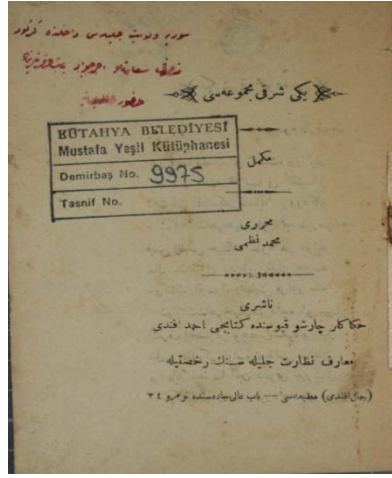 یکی شرقی مجموعه‌سی
KÜTAHYA BELEDİYESİ
Mustafa Yeşil Kütüphanesi
Demirbaş No. 9975
Tasnif No.
مکمل
محرری
محمد نظمی
ناشری
حکاکلر چارشو قپوسنده کتابجی احمد افندی
معارف نظارت جلیله سنك رخصتیله
(جمال افندی) مطبعه‌سی — باب عالی جاده‌سنده نومرو ٣٤